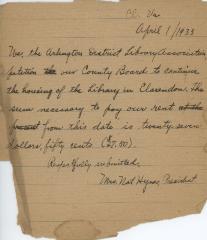 Cl. Va
April 1/1933
We, the Arlington District Library Association
petition the our County Board to continue
the housing of the Library in Clarendon. The
sum necessary to pay our rent at the
present from this date is twenty seven
dollars, fifty cents.
Respectfully submitted,
Mrs. Nat Hynson, President